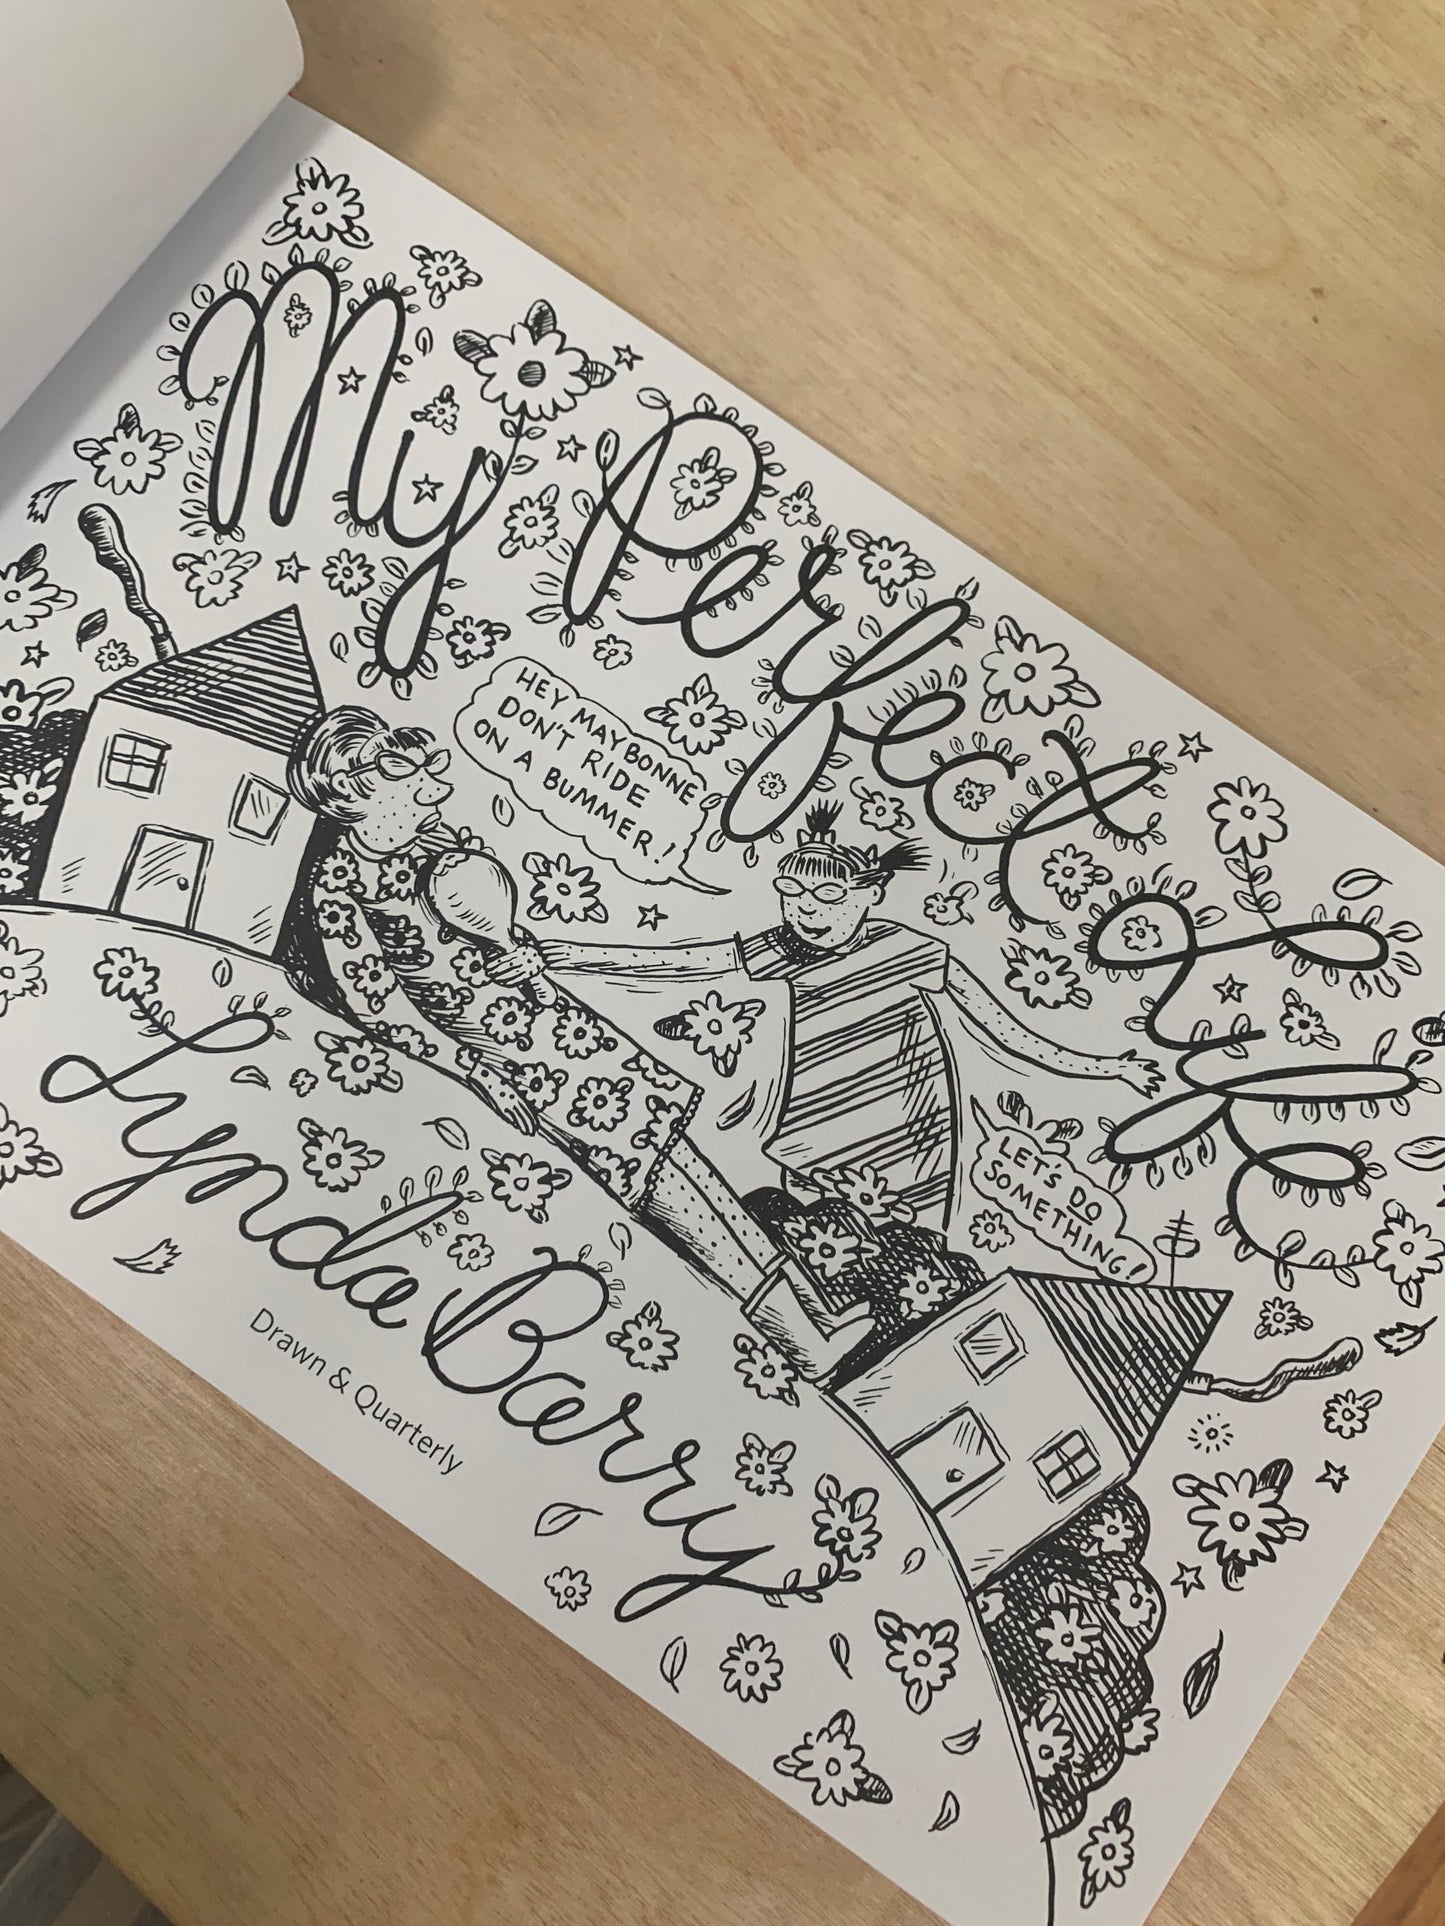 My Perfect Life
HEY MAYBONNE
DON'T RIDE
ON A BUMMER!
LET'S DO
SOMETHING!
Lynda Barry
Drawn & Quarterly